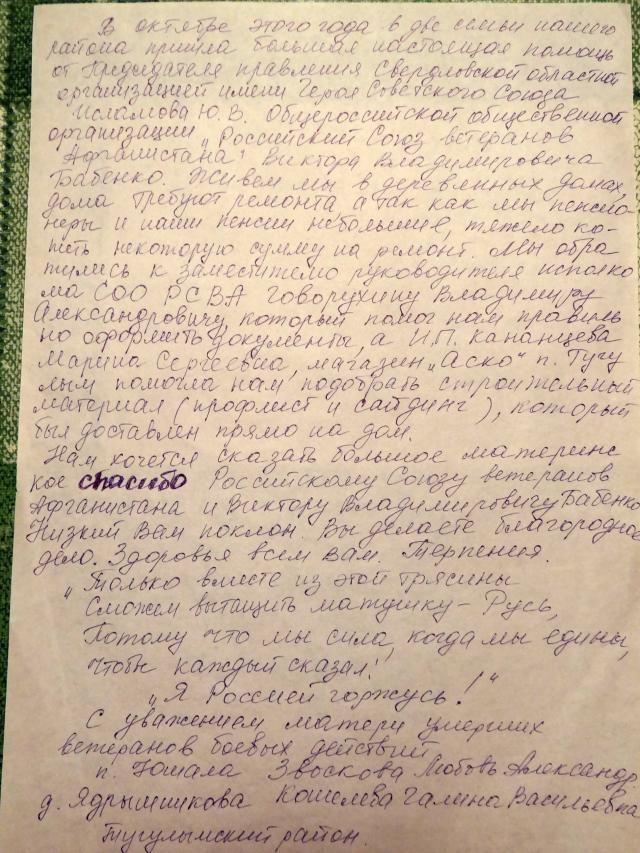 В октябре этого года в две семьи нашего
района пришла большая настоящая помощь
от Председателя правления Свердловской областной
организацией имени Героя Советского Союза
Исламова Ю.В. Общероссийской общественной
организации „Российский Союз ветеранов
Афганистана" Виктора Владимировича
Бабенко. Живем мы в деревянных домах,
дома требуют ремонта а так как мы пенсио-
неры и наши пенсии небольшие, тяжело ко-
пить некоторую сумму на ремонт. Мы обра
тились к заместителю руководителя исполко
ма СОО РСВА Говорухину Владимиру
Александровичу, который помог нам правиль
но оформить документы, а И.П. Кананцева
Марина Сергеевна, магазин „Аско" п. Тугу
лым помогла нам подобрать строительный
материал (профлист и сайдинг), который
был доставлен прямо на дом.
Нам хочется сказать большое материнс
кое спасибо Российскому Союзу ветеранов
Афганистана и Виктору Владимировичу Бабенко
Низкий Вам поклон. Вы делаете благородное
дело. Здоровья всем Вам. Терпения.
„Только вместе из этой трясины
Сможем вытащить матушку - Русь,
Потому что мы сила, когда мы едины,
Чтобы каждый сказал!
„Я Россией горжусь!"
С уважением матери умерших
ветеранов боевых действий
п. Юшала Звоскова Любовь Александр.
д. Ядрышникова Кошелева Галина Васильевна
Тугулымский район.